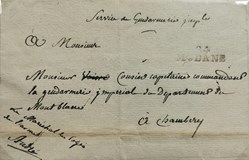 Service de Gendarmerie
A Monsieur
Monsieur Cousin capitaine commandant
la gendarmerie impériale du Département du
Mont blanc
à Chambery
Le Maréchal des logis